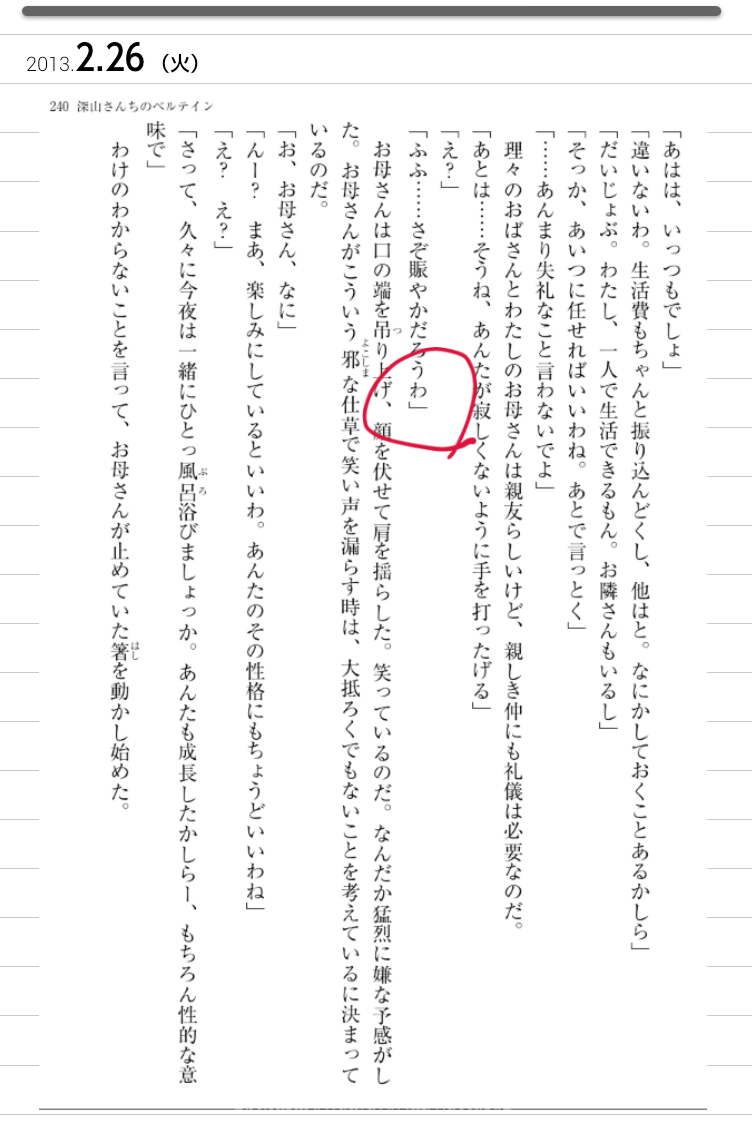 2013.2.26（火）
240 深山さんちのベルテイン
「あはは、いっつもでしょ」
「違いないわ。生活費もちゃんと振り込んどくし、他はと。なにかしておくことあるかしら」
「だいじょぶ。わたし、一人で生活できるもん。お隣さんもいるし」
「そっか、あいつに任せればいいわね。あとで言っとく」
「……あんまり失礼なこと言わないでよ」
理々のおばさんとわたしのお母さんは親友らしいけど、親しき仲にも礼儀は必要なのだ。
「あとは……そうね、あんたが寂しくないように手を打ったげる」
「え？」
「ふふ……さぞ賑やかだろうわ」
お母さんは口の端を吊り上げ、顔を伏せて肩を揺らした。笑っているのだ。なんだか猛烈に嫌な予感がし
た。お母さんがこういう邪な仕草で笑い声を漏らす時は、大抵ろくでもないことを考えているに決まって
いるのだ。
「お、お母さん、なに」
「んー？　まあ、楽しみにしているといいわ。あんたのその性格にもちょうどいいわね」
「え？　え？」
「さって、久々に今夜は一緒にひとっ風呂浴びましょっか。あんたも成長したかしらー、もちろん性的な意
味で」
わけのわからないことを言って、お母さんが止めていた箸を動かし始めた。